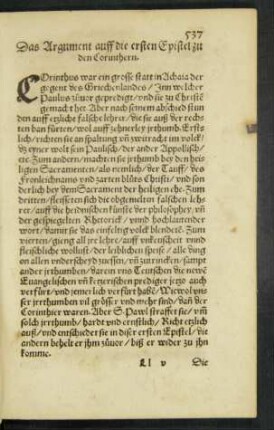 537
Das Argument auff die ersten Epistel zu
den Corinthern.
COrinthus war ein grosse statt in Achaia der
gegent des Griechenlandes / Jnn welcher
Paulus zůuor gepredigt / vnd sie zů Christē
gemacht het. Aber nach seinem abschied stun
den auff etzliche falsche lehrer / die sie auß der rechten
ban fürten / wol auff zehnerley jrthumb. Erst-
lich / richten sie an spaltung vñ zwüracht im volck /
dz eyner wolt sein Paulisch / der ander Appollisch /
etc. Zum andern / machten sie jrthumb bey den heiligen
Sacramenten / als nemlich / der Tauff / des
Fronleichnams vnd zarten blůts Christi / vnd son
derlich bey dem Sacrament der heiligen ehe. Zum
dritten / flessen sich die obgemelten falschen leh-
rer / auff die heidnischen künste der philosophey / vñ
der gespiegelten Rhetorick / vnnd hochlautender
wort / damit sie das einfeltig volck blendetē. Zum
vierten / gieng all jre lehre / auff vnkeuscheit vnnd
fleischliche wollust / der leiblichen speise / alle ding
on allen vnderscheyd zuessen / vñ zutrincken / sampt
ander jerthumben / darein vns Teutschen die newē
Euangelischen vñ ketzerischen prediger jetzo auch
verfürt / vnd jemerlich verfürt habē / Wiewol vnser
jerrthumben vil grösser vnd mehr sind / dañ der
Corinthier waren. Aber S. Pawl straffet sie / vmb
solch jrrthumb / hardt vnd ernstlich / Richt etzlich
auß / vnd entscheidet sie in diser ersten Epistel / die
andern behelt er jhm zůuor / biß er wider zu jhn
komme.
Ll v Die